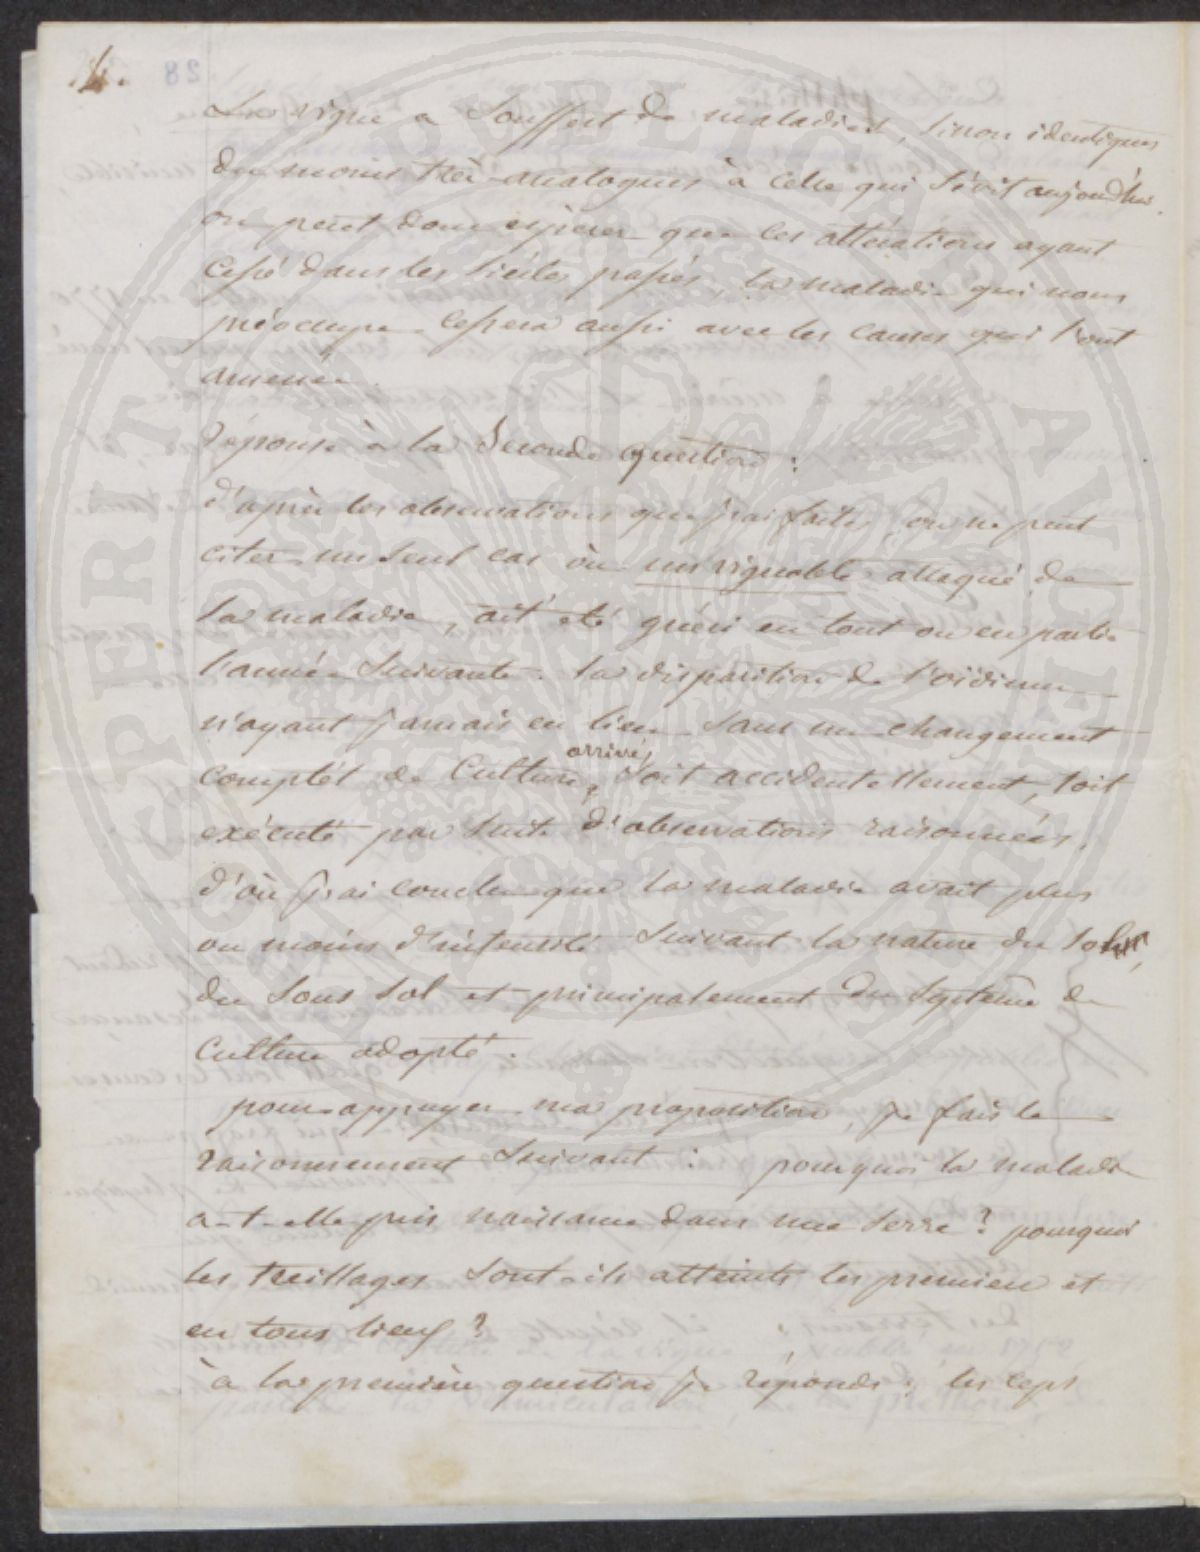 4.
La vigne a souffert de maladies, sinon identiques
du moins très-analogues à celle qui sévit aujourd'hui.
on peut donc espérer que ces altérations ayant
cessé dans les siècles passés, la maladie qui nous
préoccupe cessera aussi avec les causes qui l'ont
amenée.
réponse à la Seconde question :
d'après les observations que j'ai faites, on ne peut
citer un seul cas où un vignoble attaqué de
la maladie, ait été guéri en tout ou en partie
l'année suivante. la disparition de l'oïdium
n'ayant jamais eu lieu sans un changement
arrivé
complèt de Culture, soit accidentellement, soit
exécuté par suite d'observations raisonnées.
d'où j'ai conclu que la maladie avait plus
ou moins d'intensité suivant la nature du sol,
du sous sol et principalement du système de
Culture adopté.
pour appuyer ma proposition, je fais le
raisonnement suivant : pourquoi la maladie
a-t-elle pris naissance dans une serre ? pourquoi
les treillages sont-ils atteints les premiers et
en tous lieux ?
à la première question je réponds : les ceps
PERITAT PUBLICAE AUGENDAE